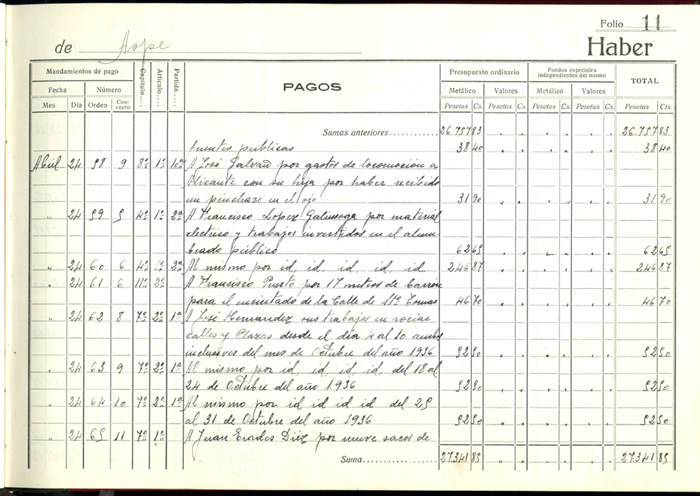 Folio 11
de Aspe
Haber
Mandamientos de pago
Fecha Número
Mes Día Orden Concepto
Capítulo.... Artículo.... Partida....
PAGOS
Presupuesto ordinario
Metálico Valores
Fondos especiales independientes del mismo
Metálico Valores
TOTAL
Pesetas Cs. Pesetas Cs. Pesetas Cs. Pesetas Cs. Pesetas Cts.
Sumas anteriores 26.757 83 26.757 83
fuentes publicas 38 40 38 40
Abril 24 58 9 8º 1º 10ª A José Galvañ por gastos de locomocion a
Alicante con su hija por haber recibido
un pinchazo en el ojo 31 90 31 90
" 24 59 5 4º 1º 2ª A Francisco Lopez Galinsoga por material
electrico y trabajos invertidos en el alum
brado público 62 65 62 65
" 24 60 6 4º 1º 2ª Al mismo por id, id. id, id, id 246 87 246 87
" 24 61 6 11º 3º A Francisco Puerto por 17 metros de
para el de la Calle de Stº Tomas 46 70 46 70
" 24 62 8 7º 2º 1ª A José Hernandez sus trabajos en rociar
calles y Plazas desde el dia 4 al 10 ambos
inclusives del mes de Octubre del año 1936 52 50 52 50
" 24 63 9 7º 2º 1ª Al mismo por id, id, id, id, del 18 al
24 de Octubre del año 1936 52 50 52 50
" 24 64 10 7º 2º 1ª Al mismo por id id id id del 25
al 31 de Octubre del año 1936 52 50 52 50
" 24 65 11 7º 1º A Juan Erades Diez por nueve sacos de
Suma 27341 85 27341 85